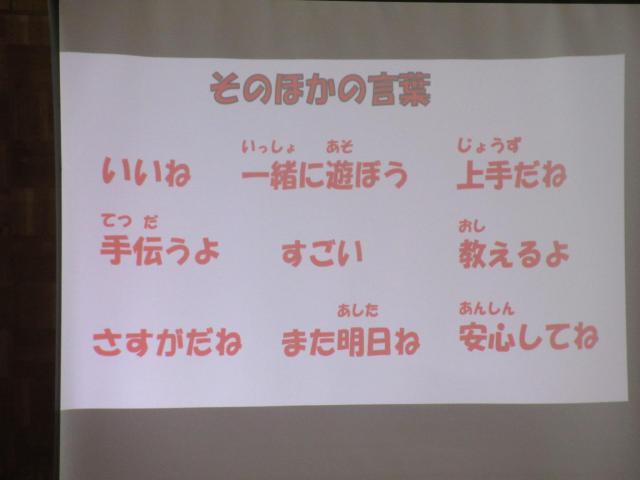 そのほかの言葉
いっしょ あそ じょうず
いいね 一緒に遊ぼう 上手だね
てつ だ おし
手伝うよ すごい 教えるよ
あした あんしん
さすがだね また明日ね 安心してね